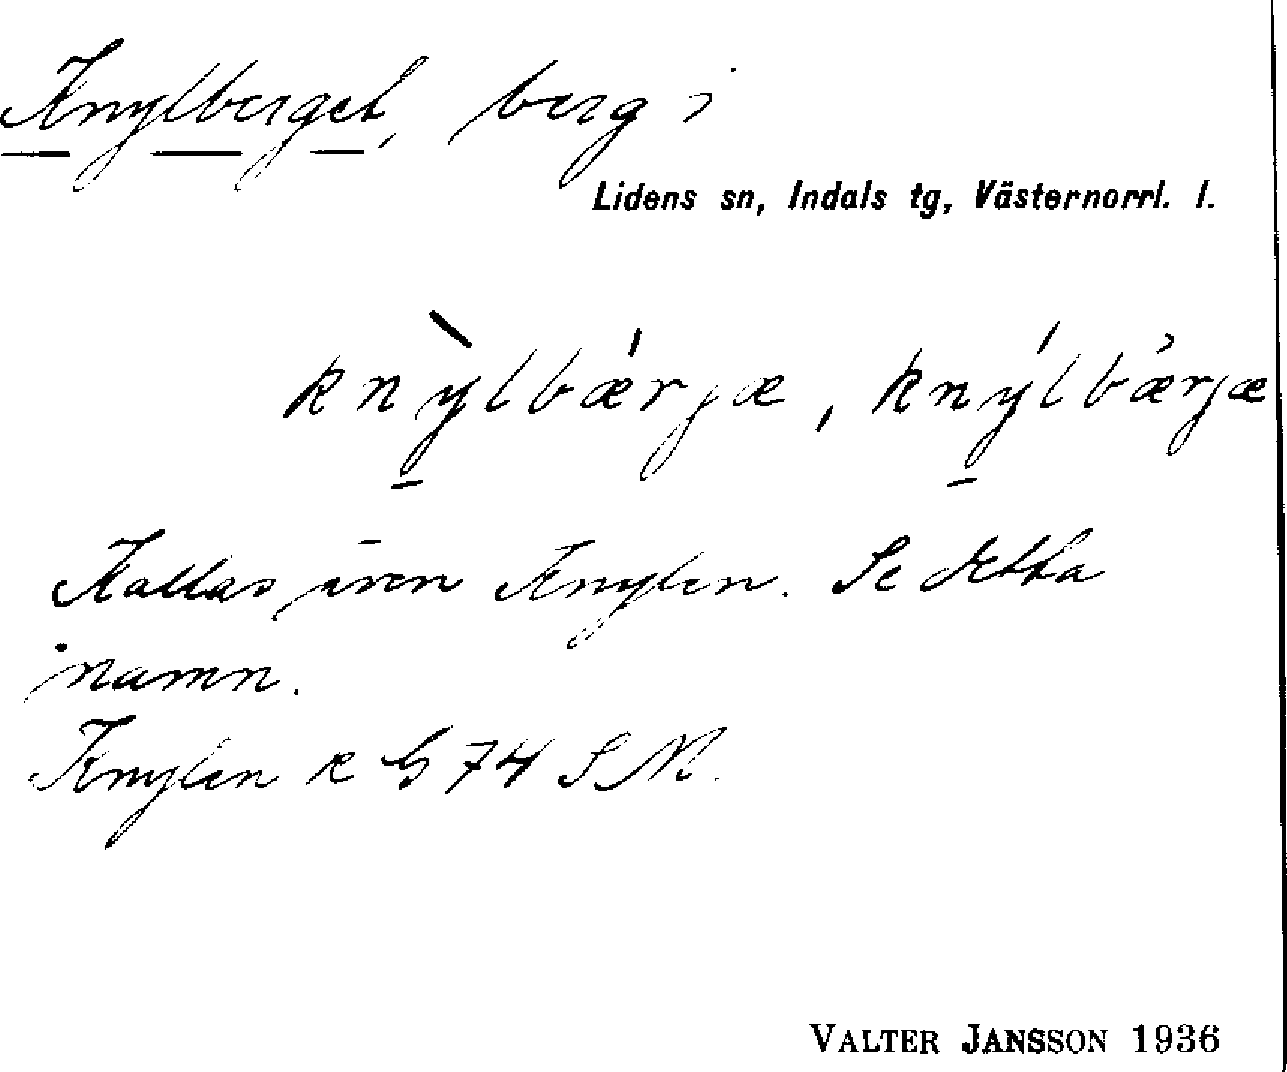 Knylberget, berg i
Lidens sn, Indals tg, Västernorrl. l.
knỳlbǽrjæ, knýlbæ̀rjæ
Kallas även Knylen. Se detta
namn.
Knylen k G 74 SV.
VALTER JANSSON 1936